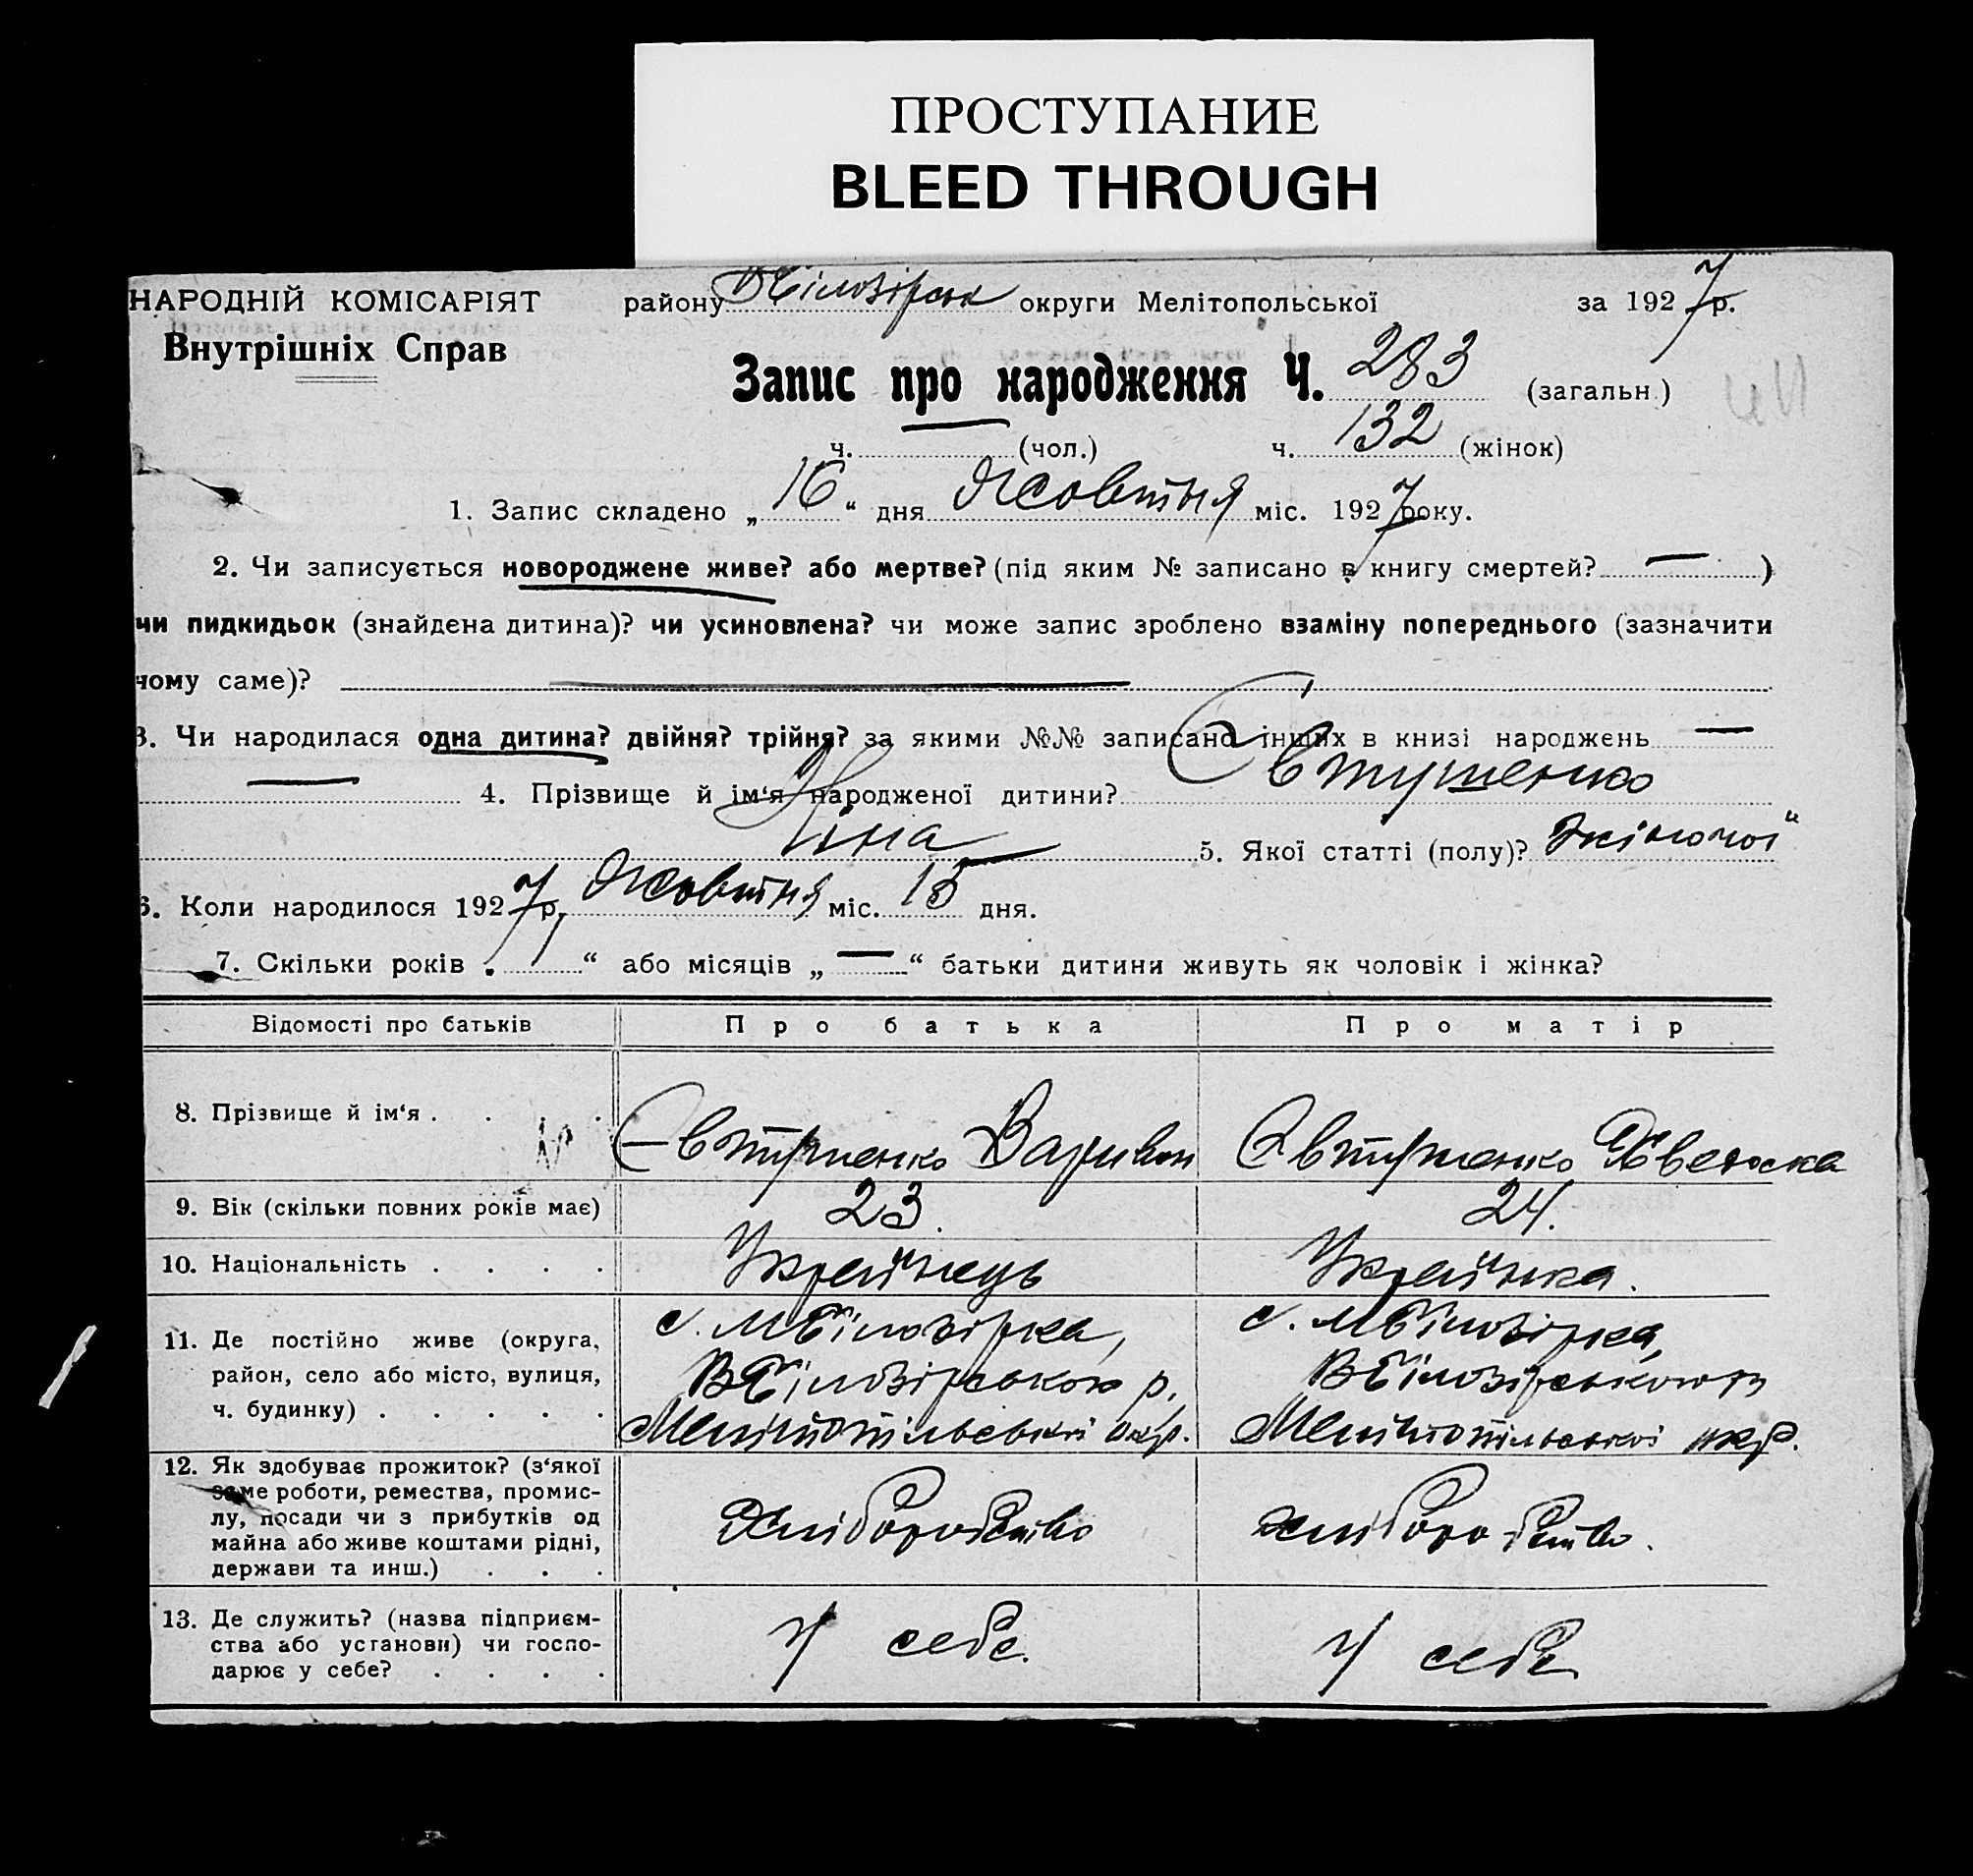 ПРОСТУПАНИЕ
BLEED THROUGH
НАРОДНІЙ КОМІСАРІЯТ району округи Мелітопольської за 1927 р.
Внутрішніх Справ
Запис про народження Ч. 283 (загальн.)
ч. (чол.) ч. 132 (жінок)
1. Запис складено „16“ дня Жовтня міс. 1927 року.
2. Чи записується новороджене живе? або мертве? (під яким № записано в книгу смертей? — )
чи пидкидьок (знайдена дитина)? чи усиновлена? чи може запис зроблено взаміну попереднього (зазначити
чому саме)?
3. Чи народилася одна дитина? двійня? трійня? за якими №№ записано інших в книзі народжень —
— 4. Прізвище й ім‘я народженої дитини? Євтушенко
Ніна 5. Якої статті (полу)? жіночої
6. Коли народилося 1927 р. Жовтня міс. 15 дня.
7. Скільки років „1“ або місяців „—“ батьки дитини живуть як чоловік і жінка?
Відомості про батьків Про батька Про матір
8. Прізвище й ім‘я . . . Євтушенко Євтушенко
9. Вік (скільки повних років має) 23. 24.
10. Національність . . . . Українець Українка.
11. Де постійно живе (округа, с. МБілозірка, с. МБілозірка,
район, село або місто, вулиця, ВБілозірського р. ВБілозірського р
ч. будинку) . . . . . Мелітопільської окр. Мелітопільської окр.
12. Як здобуває прожиток? (з‘якої
саме роботи, ремества, промис-
лу, посади чи з прибутків од Хліборобство хліборобство.
майна або живе коштами рідні,
держави та инш.) . . .
13. Де служить? (назва підприєм-
ства або установи) чи госпо- У себе. У себе
дарює у себе? . . . .